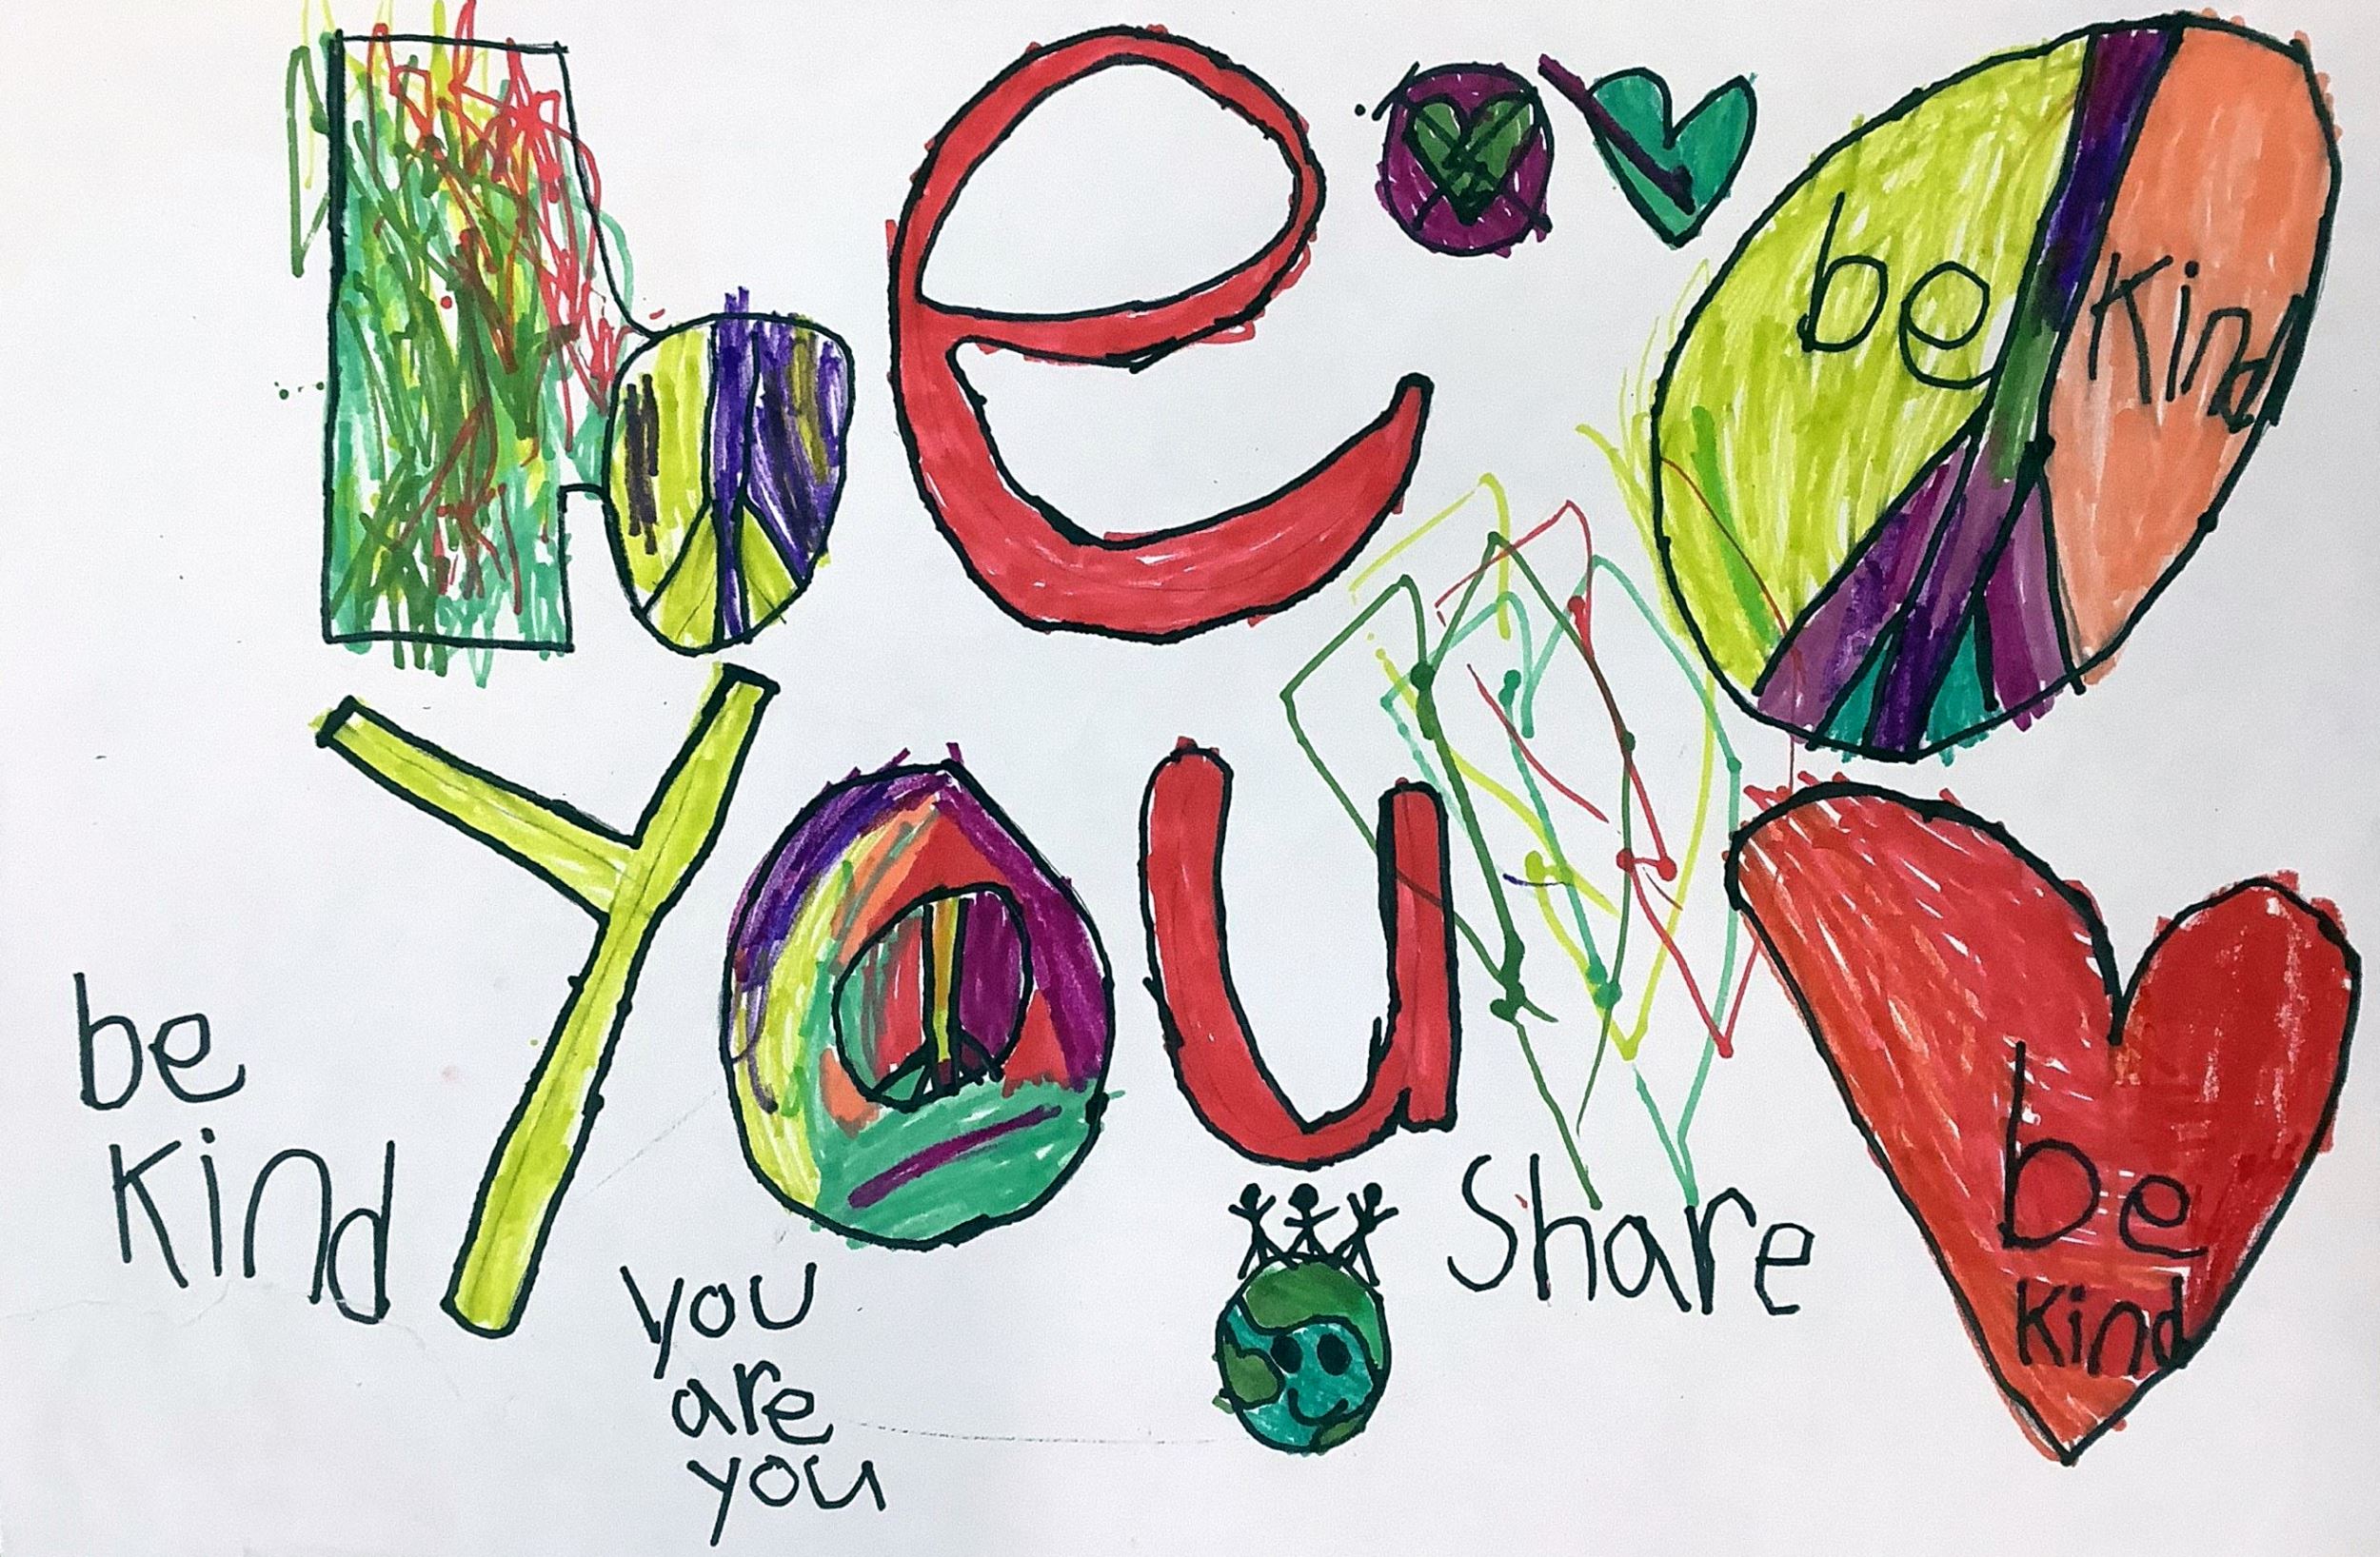 be
YOU
be Kind
be
Kind
you
are
you
Share
be
Kind